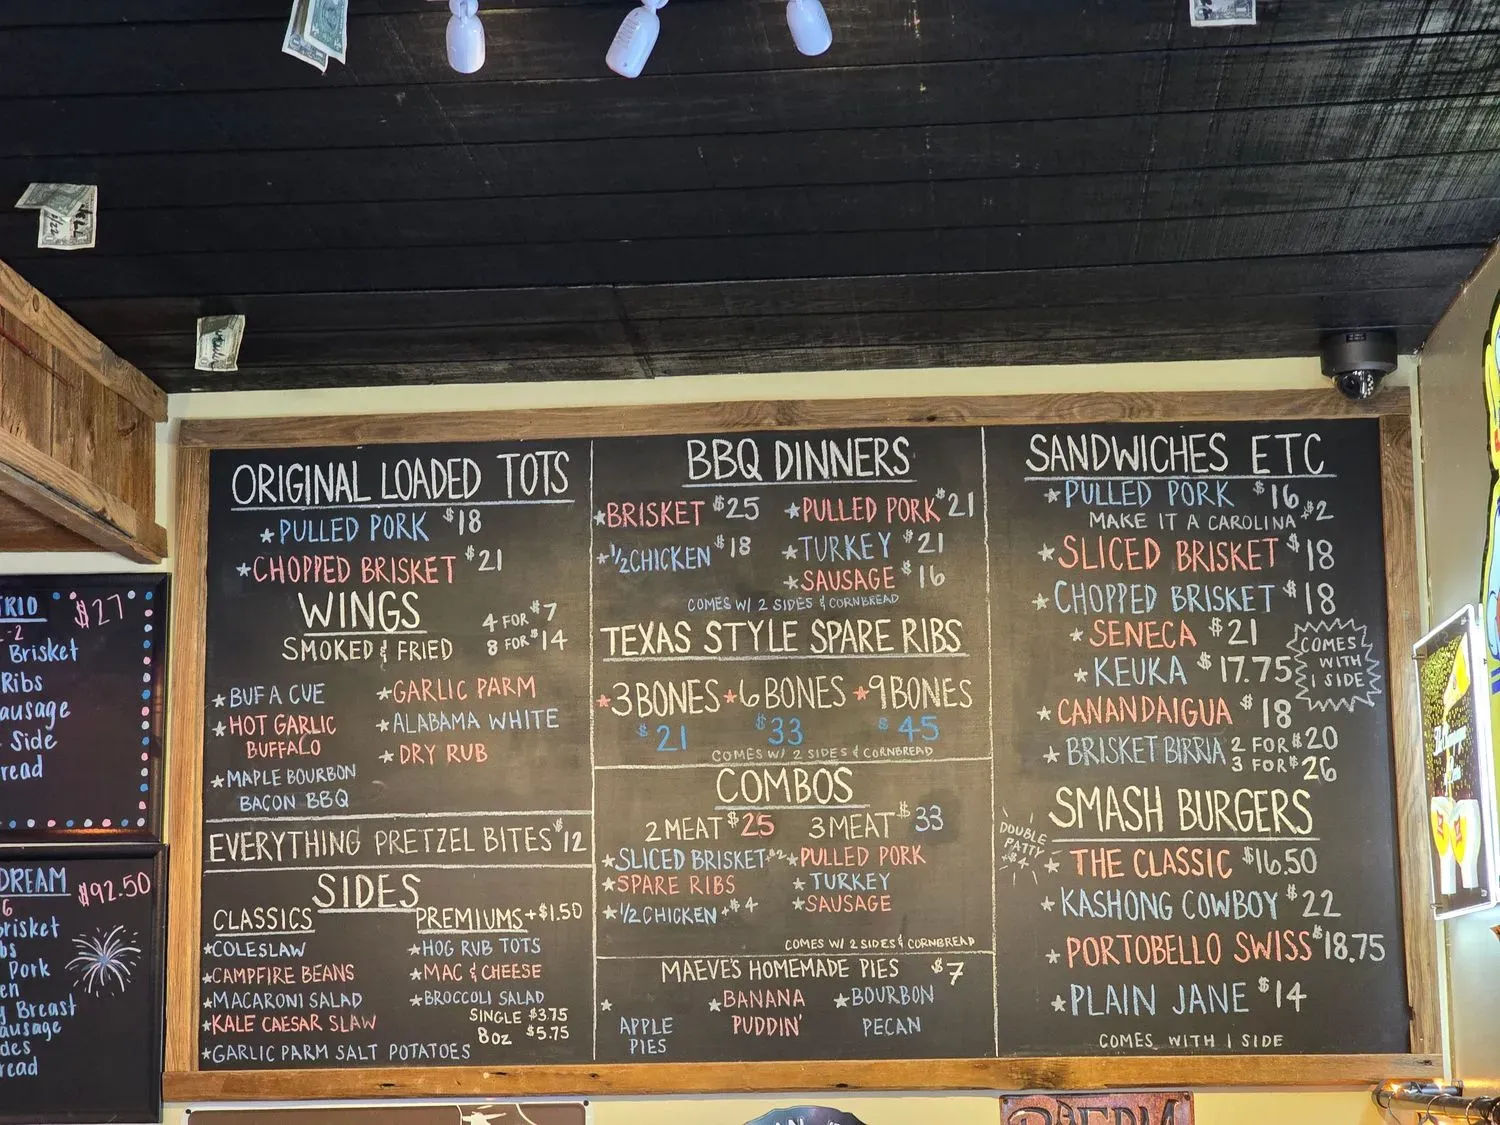 ORIGINAL LOADED TOTS
*PULLED PORK $18
*CHOPPED BRISKET $21
WINGS
SMOKED & FRIED
4 FOR $7
8 FOR $14
*BUF A CUE
*HOT GARLIC
BUFFALO
*MAPLE BOURBON
BACON BBQ
*GARLIC PARM
*ALABAMA WHITE
*DRY RUB
EVERYTHING PRETZEL BITES $12
SIDES
CLASSICS
*COLESLAW
*CAMPFIRE BEANS
*MACARONI SALAD
*KALE CAESAR SLAW
*GARLIC PARM SALT POTATOES
PREMIUMS +$1.50
*HOG RUB TOTS
*MAC & CHEESE
*BROCCOLI SALAD
SINGLE $3.75
8oz $5.75
BBQ DINNERS
*BRISKET $25
*1/2 CHICKEN $18
*PULLED PORK $21
*TURKEY $21
*SAUSAGE $16
COMES W/ 2 SIDES & CORNBREAD
TEXAS STYLE SPARE RIBS
*3 BONES *6 BONES *9 BONES
$21 $33 $45
COMES W/ 2 SIDES & CORNBREAD
COMBOS
2 MEAT $25 3 MEAT $33
*SLICED BRISKET +$2
*SPARE RIBS
*1/2 CHICKEN +$4
*PULLED PORK
*TURKEY
*SAUSAGE
COMES W/ 2 SIDES & CORNBREAD
MAEVE'S HOMEMADE PIES $7
*
APPLE
PIES
*BANANA
PUDDIN'
*BOURBON
PECAN
SANDWICHES ETC
*PULLED PORK $16
MAKE IT A CAROLINA +$2
*SLICED BRISKET $18
*CHOPPED BRISKET $18
*SENECA $21
*KEUKA $17.75
COMES
WITH
1 SIDE
*CANANDAIGUA $18
*BRISKET BIRRIA 2 FOR $20
3 FOR $26
SMASH BURGERS
DOUBLE
PATTY
+$4
*THE CLASSIC $16.50
*KASHONG COWBOY $22
*PORTOBELLO SWISS $18.75
*PLAIN JANE $14
COMES WITH 1 SIDE
TRIO $27
-2
Brisket
Ribs
ausage
Side
read
DREAM $92.50
6
brisket
bs
Pork
en
y Breast
ausage
des
read